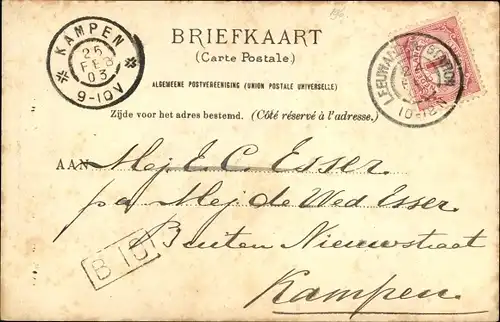 KAMPEN
25
FEB
03
9-10V
BRIEFKAART
(Carte Postale.)
ALGEMEENE POSTVEREENIGING (UNION POSTALE UNIVERSELLE)
Zijde voor het adres bestemd. (Côté réservé à l'adresse.)
10-12
AAN Mej. E. C. Esser.
pa Mej de Wed Esser.
Buiten Nieuwstraat
Kampen.